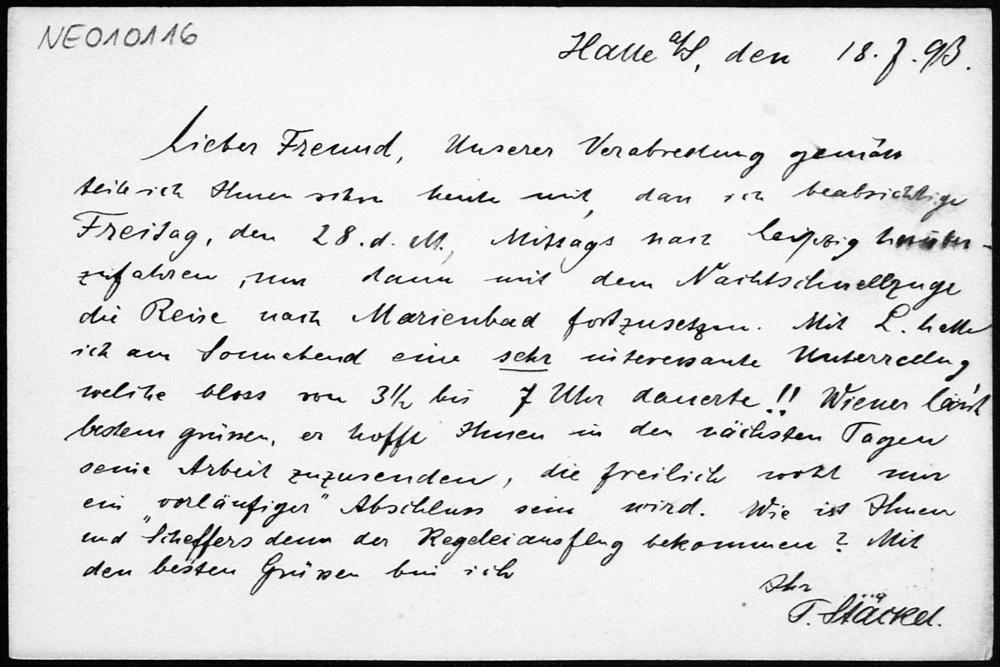 NE010116
Halle a/S, den 18. 7. 93.
Lieber Freund, Unserer Verabredung gemäss
teile ich Ihnen schon heute mit, dass ich beabsichtige
Freitag, den 28. d. M., Mittags nach Leipzig herüber-
zufahren, um dann mit dem Nachtschnellzuge
die Reise nach Marienbad fortzusetzen. Mit L. hatte
ich am Sonnabend eine sehr interessante Unterredung
welche bloss von 3 1/2 bis 7 Uhr dauerte!! Wiener lässt
bestens grüssen, er hofft Ihnen in den nächsten Tagen
seine Arbeit zuzusenden, die freilich wohl nur
ein "vorläufiger" Abschluss sein wird. Wie ist Ihnen
und Scheffers denn der Kegeleiausflug bekommen? Mit
den besten Grüssen bin ich
Ihr
P. Stäckel.